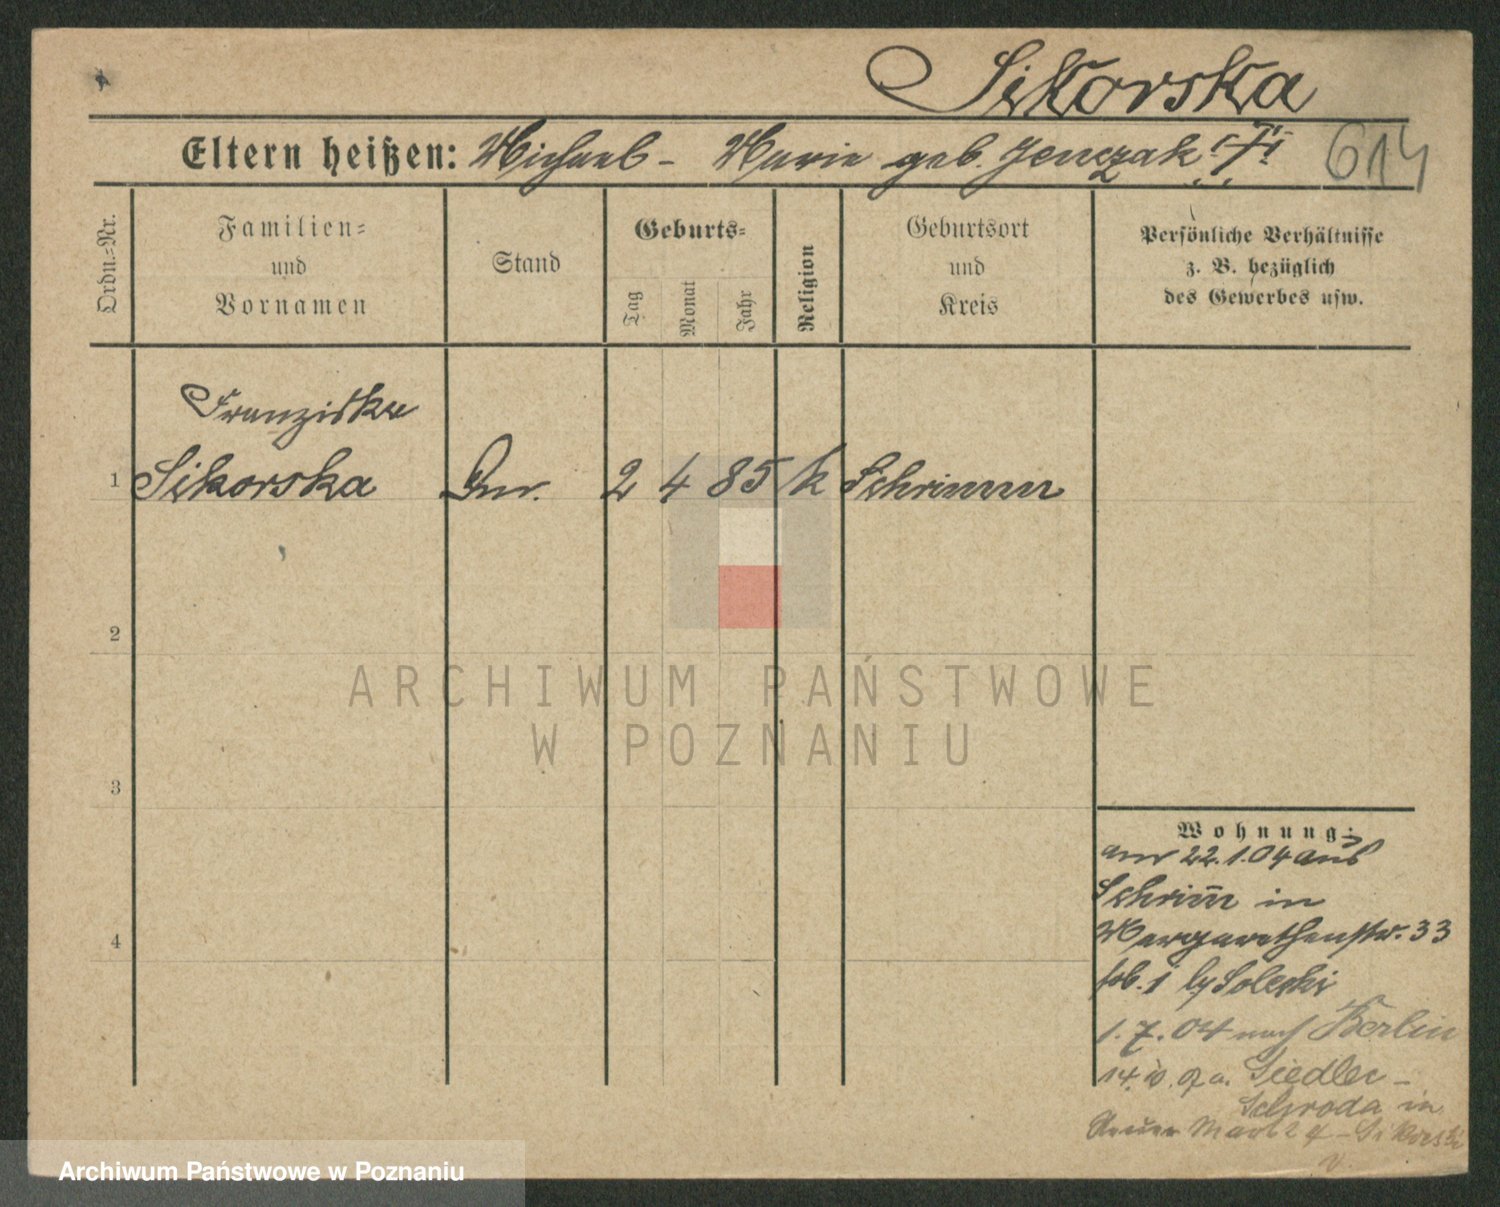 Sikorska
Eltern heißen: Michael - Marie geb. Jenczak
614
Ordn.-Nr.
Familien-
und
Vornamen
Stand
Geburts-
Tag
Monat
Jahr
Religion
Geburtsort
und
Kreis
Persönliche Verhältnisse
z. B. bezüglich
des Gewerbes usw.
Franziska
1 Sikorska 2 4 85 k Schrimm
2
3
4
Wohnung:
am 22.1.04 aus
Schrim̄ in
Margarethenstr. 33
1 Soleski
1.7.04 nach Berlin
Siedler -
Schroda in
Neuer Markt 4 - Sikorski
ARCHIWUM PAŃSTWOWE
W POZNANIU
Archiwum Państwowe w Poznaniu